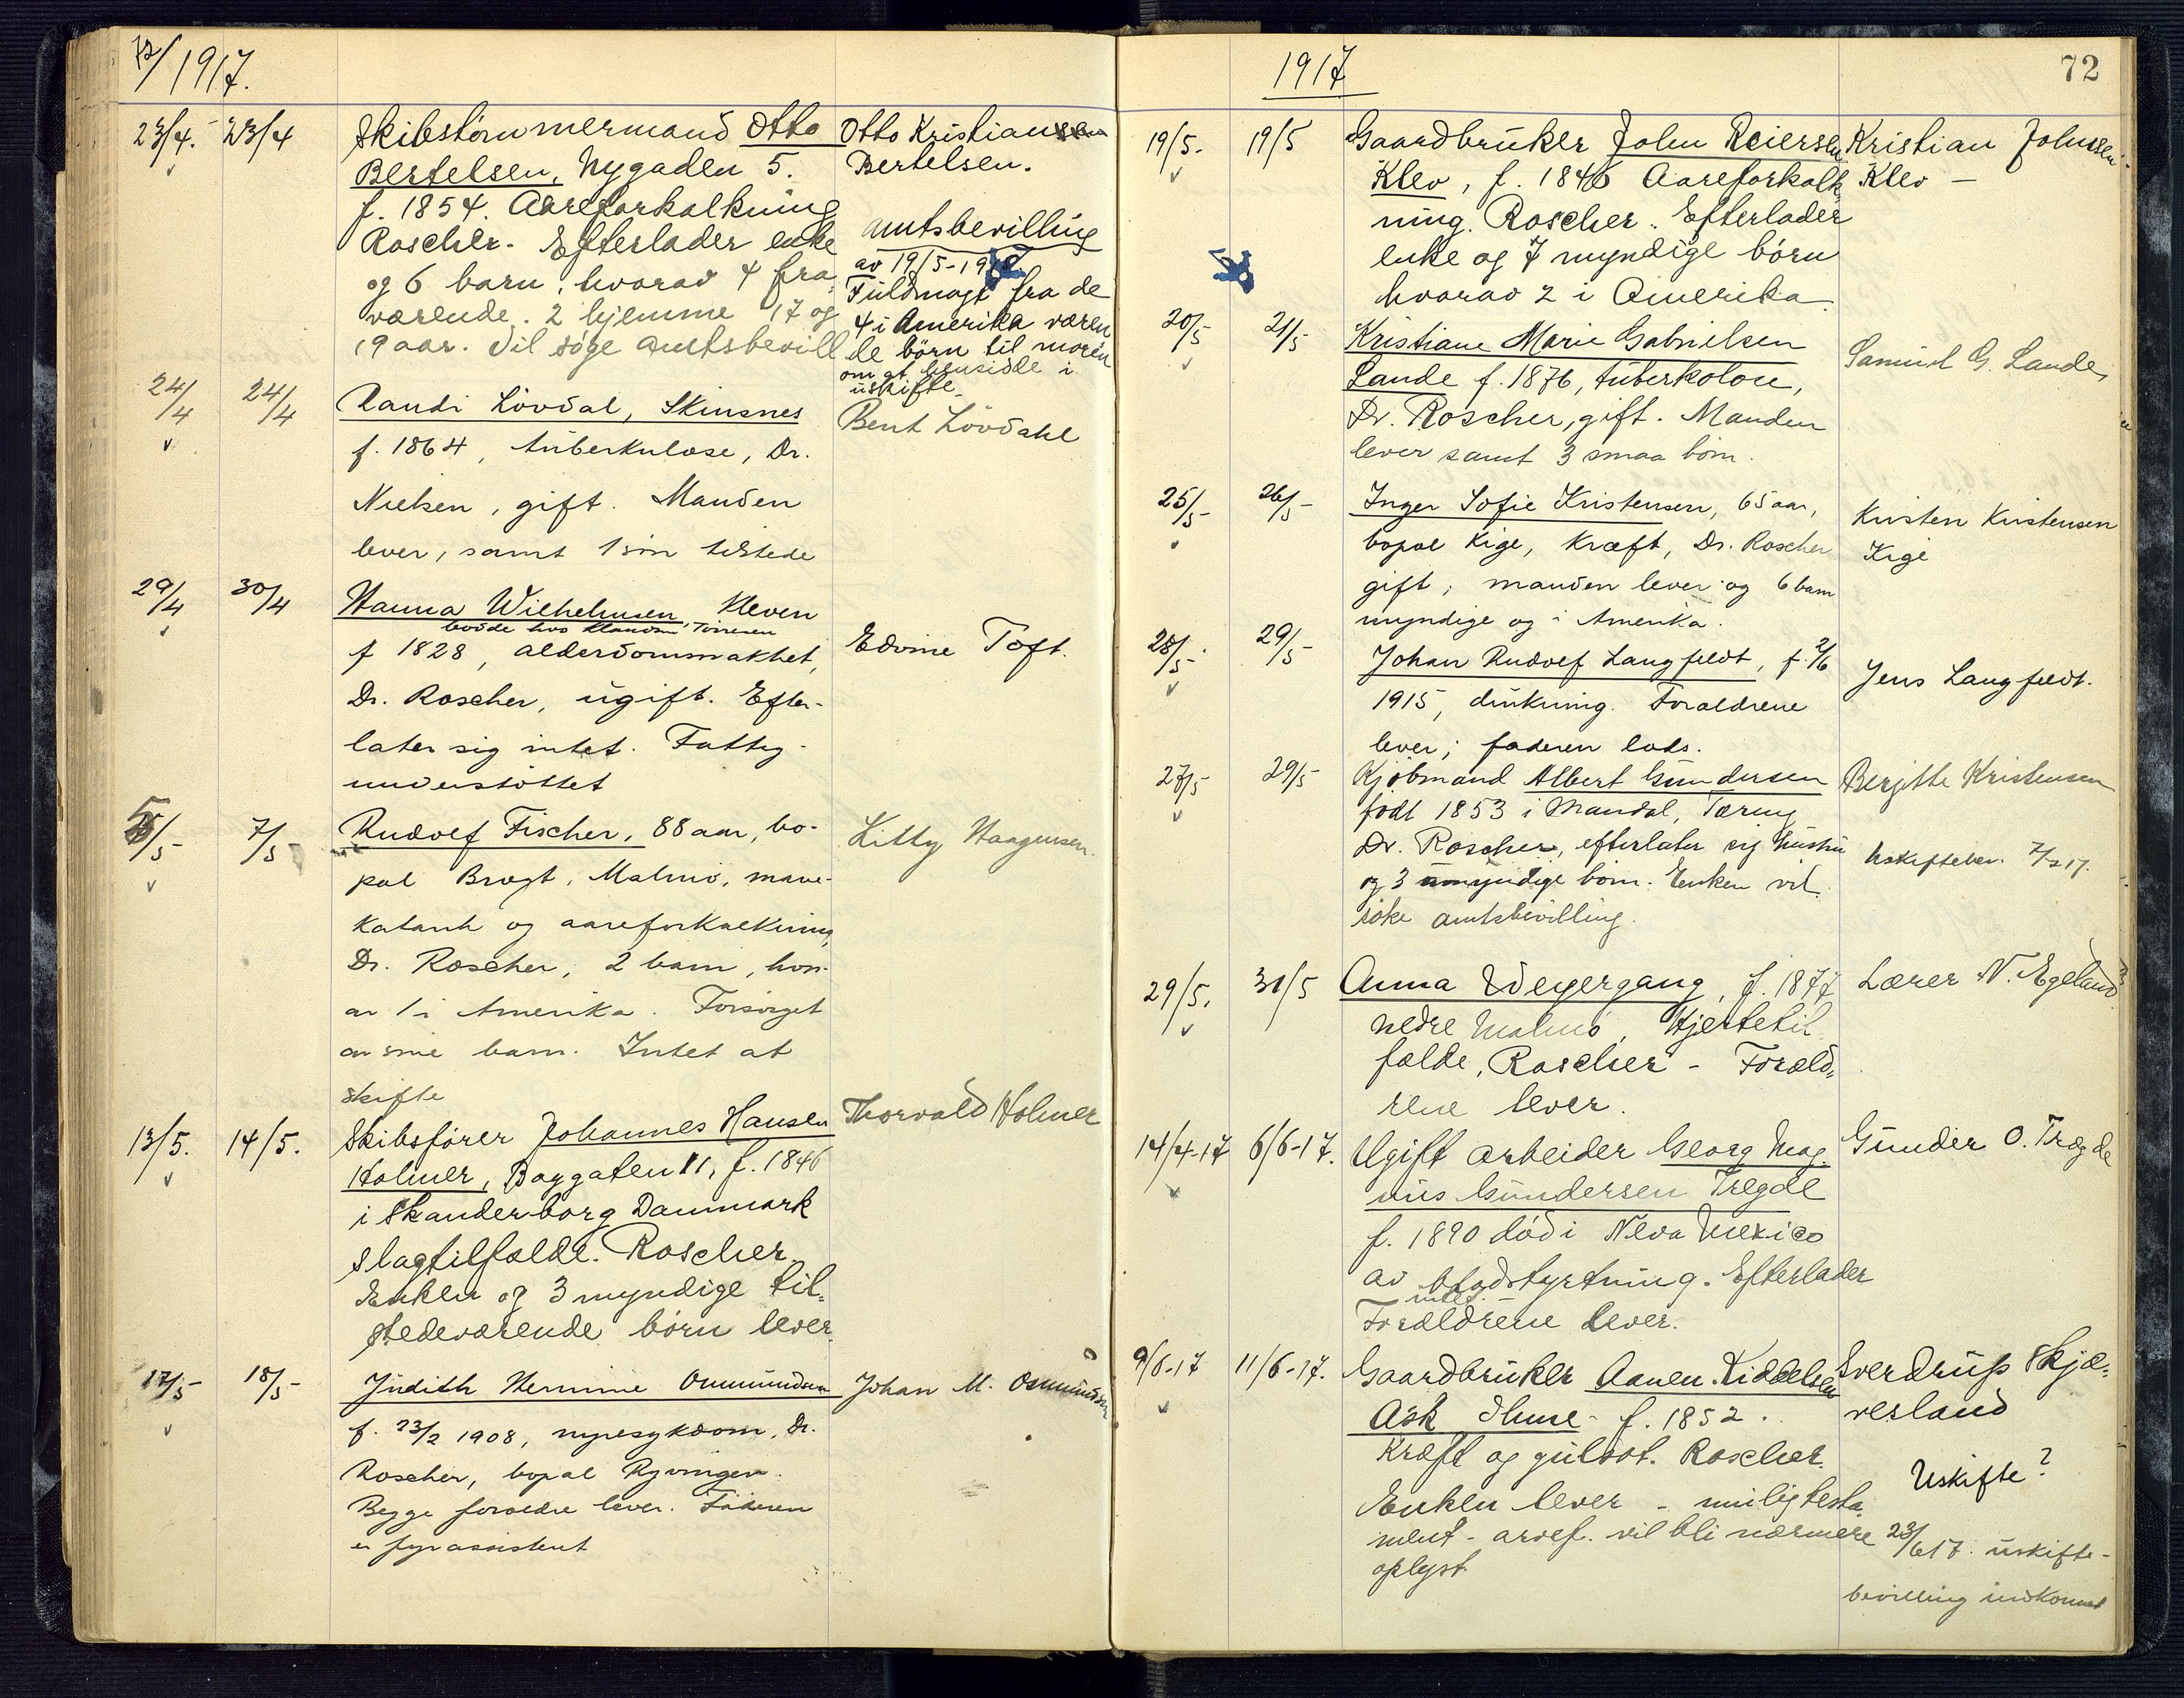 72/1917.
23/4. 23/4 Skibstømmermand Otto
Bertelsen, Nygaden 5.
f. 1854. Aareforkalkning
Roscher. Efterlader enke
og 6 barn, hvorav 4 fra
værende. 2 hjemme 17 og
19 aar. Vil søge amtsbevill
Otto Kristiansen
Bertelsen.
Amtsbevilling
av 19/5-19
Fuldmagt fra de
4 i Amerika væren
de børn til moren
om at hensidde i
uskifte.
24/4 24/4 Randi Løvdal, Skinsnes
f. 1864, tuberkulose, Dr.
Nielsen, gift. Manden
lever, samt 1 søn tilstede
Bent Løvdahl
29/4 30/4 Hanna Wilhelmsen Kleven
bodde hos Tørresen
f 1828, alderdomssvakhet,
Dr. Roscher, ugift. Efter-
later sig intet. Fattig-
understøttet
Edvine Toft.
5/5 7/5 Rudolf Fischer, 88 aar, bo-
pæl Bragt, Malmø, mave-
katarrh og aareforkalkning,
Dr. Roscher, 2 barn, hvor-
av 1 i Amerika. Forsørget
av sine barn. Intet at
skifte
Kitty Haagensen.
13/5. 14/5. Skibsfører Johannes Hansen
Holmer, Baggaten 11, f. 1846
i Skanderborg Danmark
Slagtilfælde. Roscher.
Enken og 3 myndige til-
stedeværende børn lever.
Thorvald Holmer
17/5 18/5 Judith Hermine Osmundsen
f. 23/2 1908, nyresykdom, Dr.
Roscher, bopæl Ryvingen.
Begge forældre lever. Faderen
er fyrassistent
Johan M. Osmundsen
1917
72
19/5. 19/5 Gaardbruker John Reiersen
Klev, f. 1846 Aareforkalk
ning. Roscher. Efterlader
enke og 7 myndige børn
hvorav 2 i Amerika
Kristian Johnsen
Klev –
20/5 21/5 Kristiane Marie Gabrielsen
Lande f. 1876, tuberkolose,
Dr. Roscher, gift. Manden
lever samt 3 smaa børn.
Samuel G. Lande,
25/5 26/5 Inger Sofie Kristensen, 65 aar,
bopæl Kige, Kræft, Dr. Roscher
gift; manden lever og 6 barn
myndige og i Amerika.
Kristen Kristensen
Kige
28/5 29/5 Johan Rudolf Langfeldt, f. 2/6
1915, drukning. Forældrene
lever; faderen lods.
Jens Langfeldt.
27/5 29/5 Kjøbmand Albert Gundersen
født 1853 i Mandal, Tæring
Dr. Roscher, efterlater sig hustru
og 3 umyndige børn. Enken vil
søke amtsbevilling.
Bergitte Kristensen
Uskiftebev. 7/717.
29/5. 31/5 Anna Weyergang, f. 1877
nedre Malmø, Hjertetil
fælde, Roscher – Foræld,
rene lever.
Lærer N. Egeland
14/4-17 6/6-17. Ugift arbeider Georg Mag-
nus Gundersen Tregde
f. 1890 död i Neva Mexico
av blodstyrtning. Efterlader
intet.
Forældrene lever.
Gunder O. Trægde
9/6-17 11/6-17. Gaardbruker Aanen Kiddelsen
Ask Ihme f. 1852.
Kræft og gulsot. Roscher.
Enken lever – mulig testa,
ment – arvef. vil bli nærmere
oplyst
Sverdrup Skjæ-
vesland
Uskifte?
23/617. uskifte-
bevilling indkommet